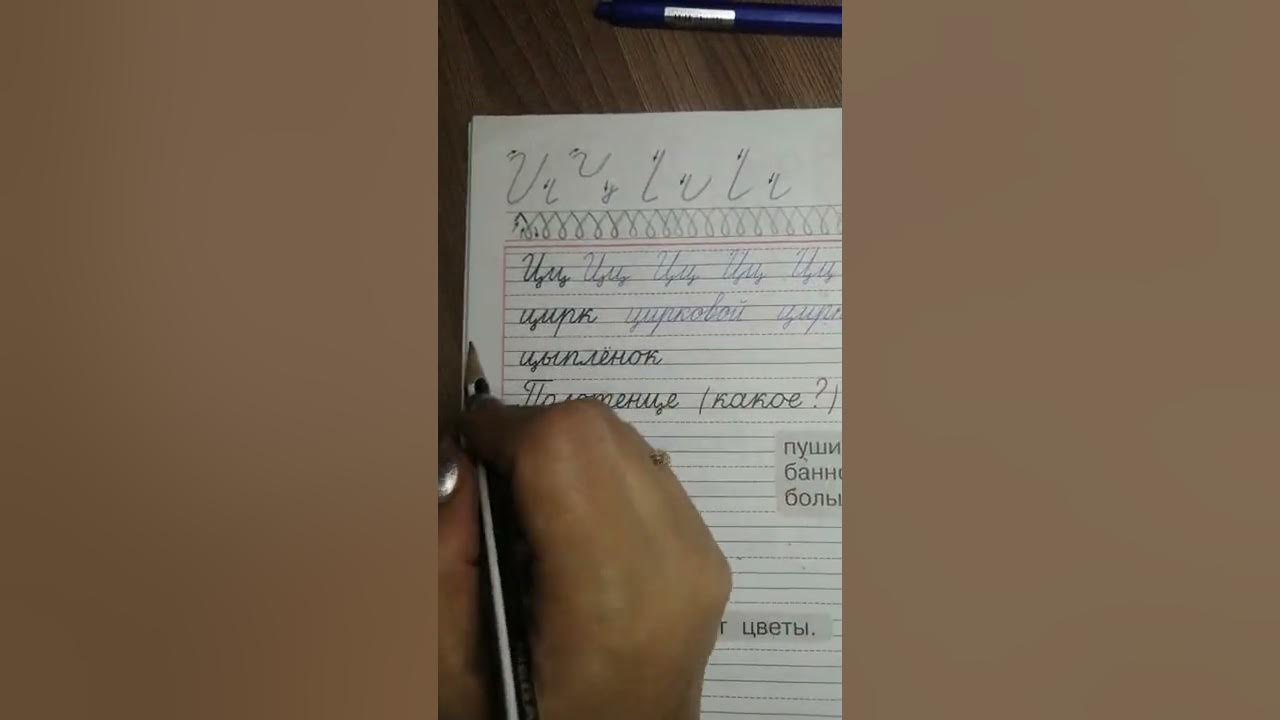 Цц Цц Цц Цц Цц
цирк цирковой цирк
цыплёнок
Полотенце (какое?)
пуши
банно
больш
т цветы.